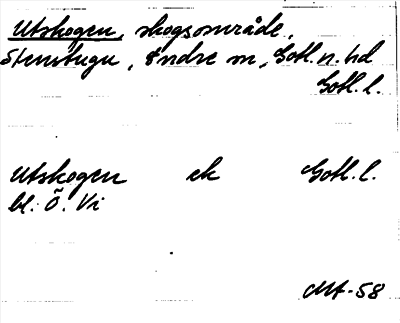 Utskogen, skogsområde,
Stenstugu, Endre sn, Gotl. n. hd
Gotl. l.
Utskogen ek Gotl. l.
bl. Ö. Vi
MA-58